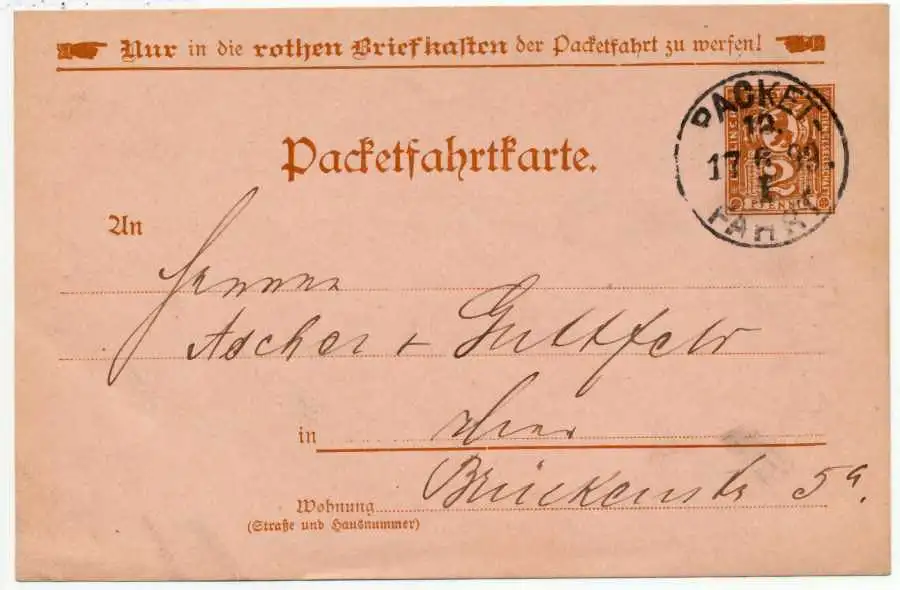 Nur in die rothen Briefkasten der Packetfahrt zu werfen!
PACKET-
17. 8. 99.
FAHRT
2
PFENNIG
Packetfahrtkarte.
An
Herren
Ascher + Guttfeld
in hier
Brückenstr 5a.
Wohnung
(Straße und Hausnummer)